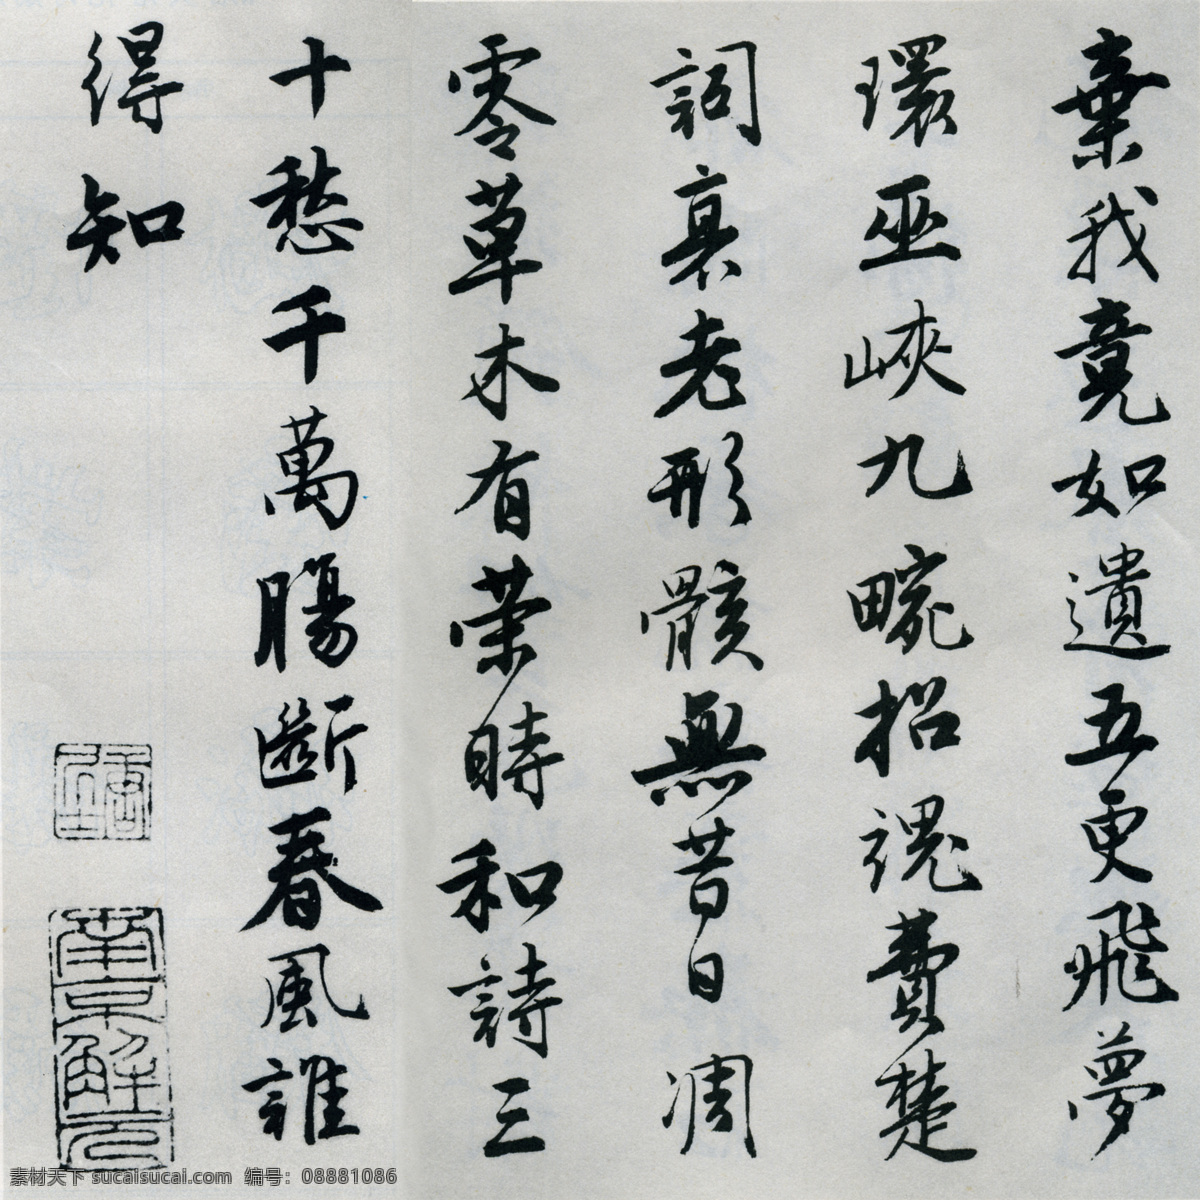 棄我竟如遺五更飛夢
環巫峽九畹招魂費楚
詞衰老形骸無昔日凋
零草木有榮時和詩三
十愁千萬腸斷春風誰
得知
南京解元
素材天下 sucaisucai.com 编号：08881086